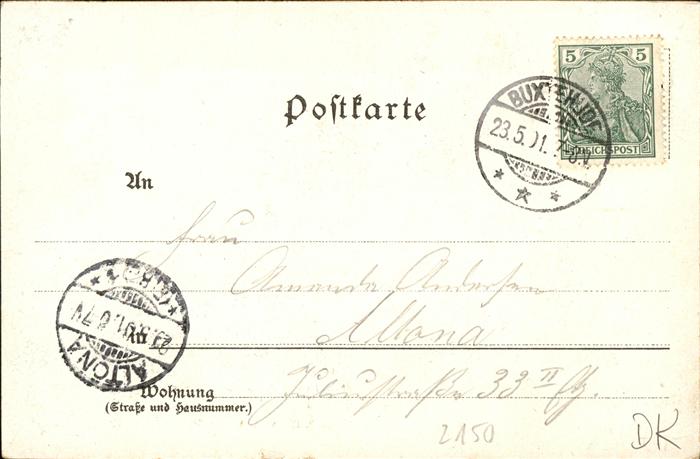 5 5
REICHSPOST
BUXTEHUDE
23.5.01. 7-8.V.
Postkarte
An
Frau
Amanda Andersen
in
Altona
ALTONA
23.5.01. 6-7N
Wohnung
(Straße und Hausnummer.)
Juliusstraße 33 II
2150
DK